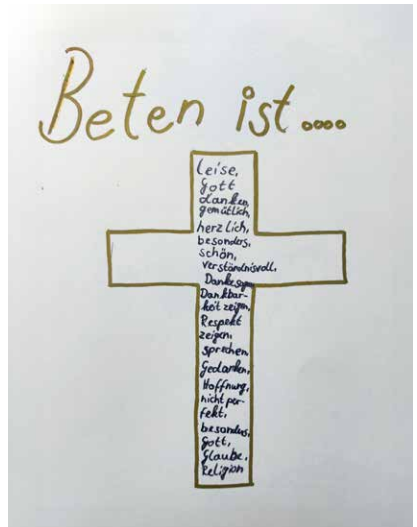 Beten ist....
Leise,
Gott
danken,
gemütlich,
herzlich,
besonders,
schön,
verständnisvoll,
Danke sagen,
Dankbar-
keit zeigen,
Respekt
zeigen,
sprechen
Gedanken,
Hoffnung,
nicht per-
fekt,
besonders,
Gott,
Glaube,
Religion